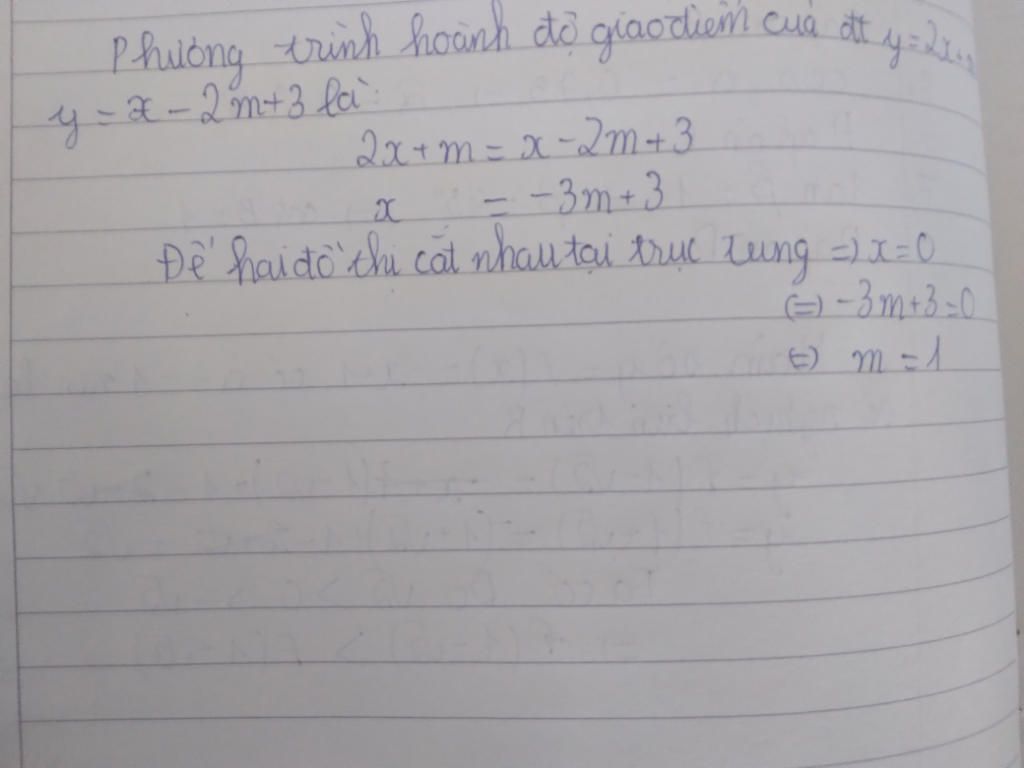 Phương trình hoành độ giao điểm của đt y=2x+
y = x - 2m+3 là:
2x+m = x-2m+3
x = -3m+3
Để hai đồ thị cắt nhau tại trục tung => x=0
(=) -3m+3=0
(=) m = 1